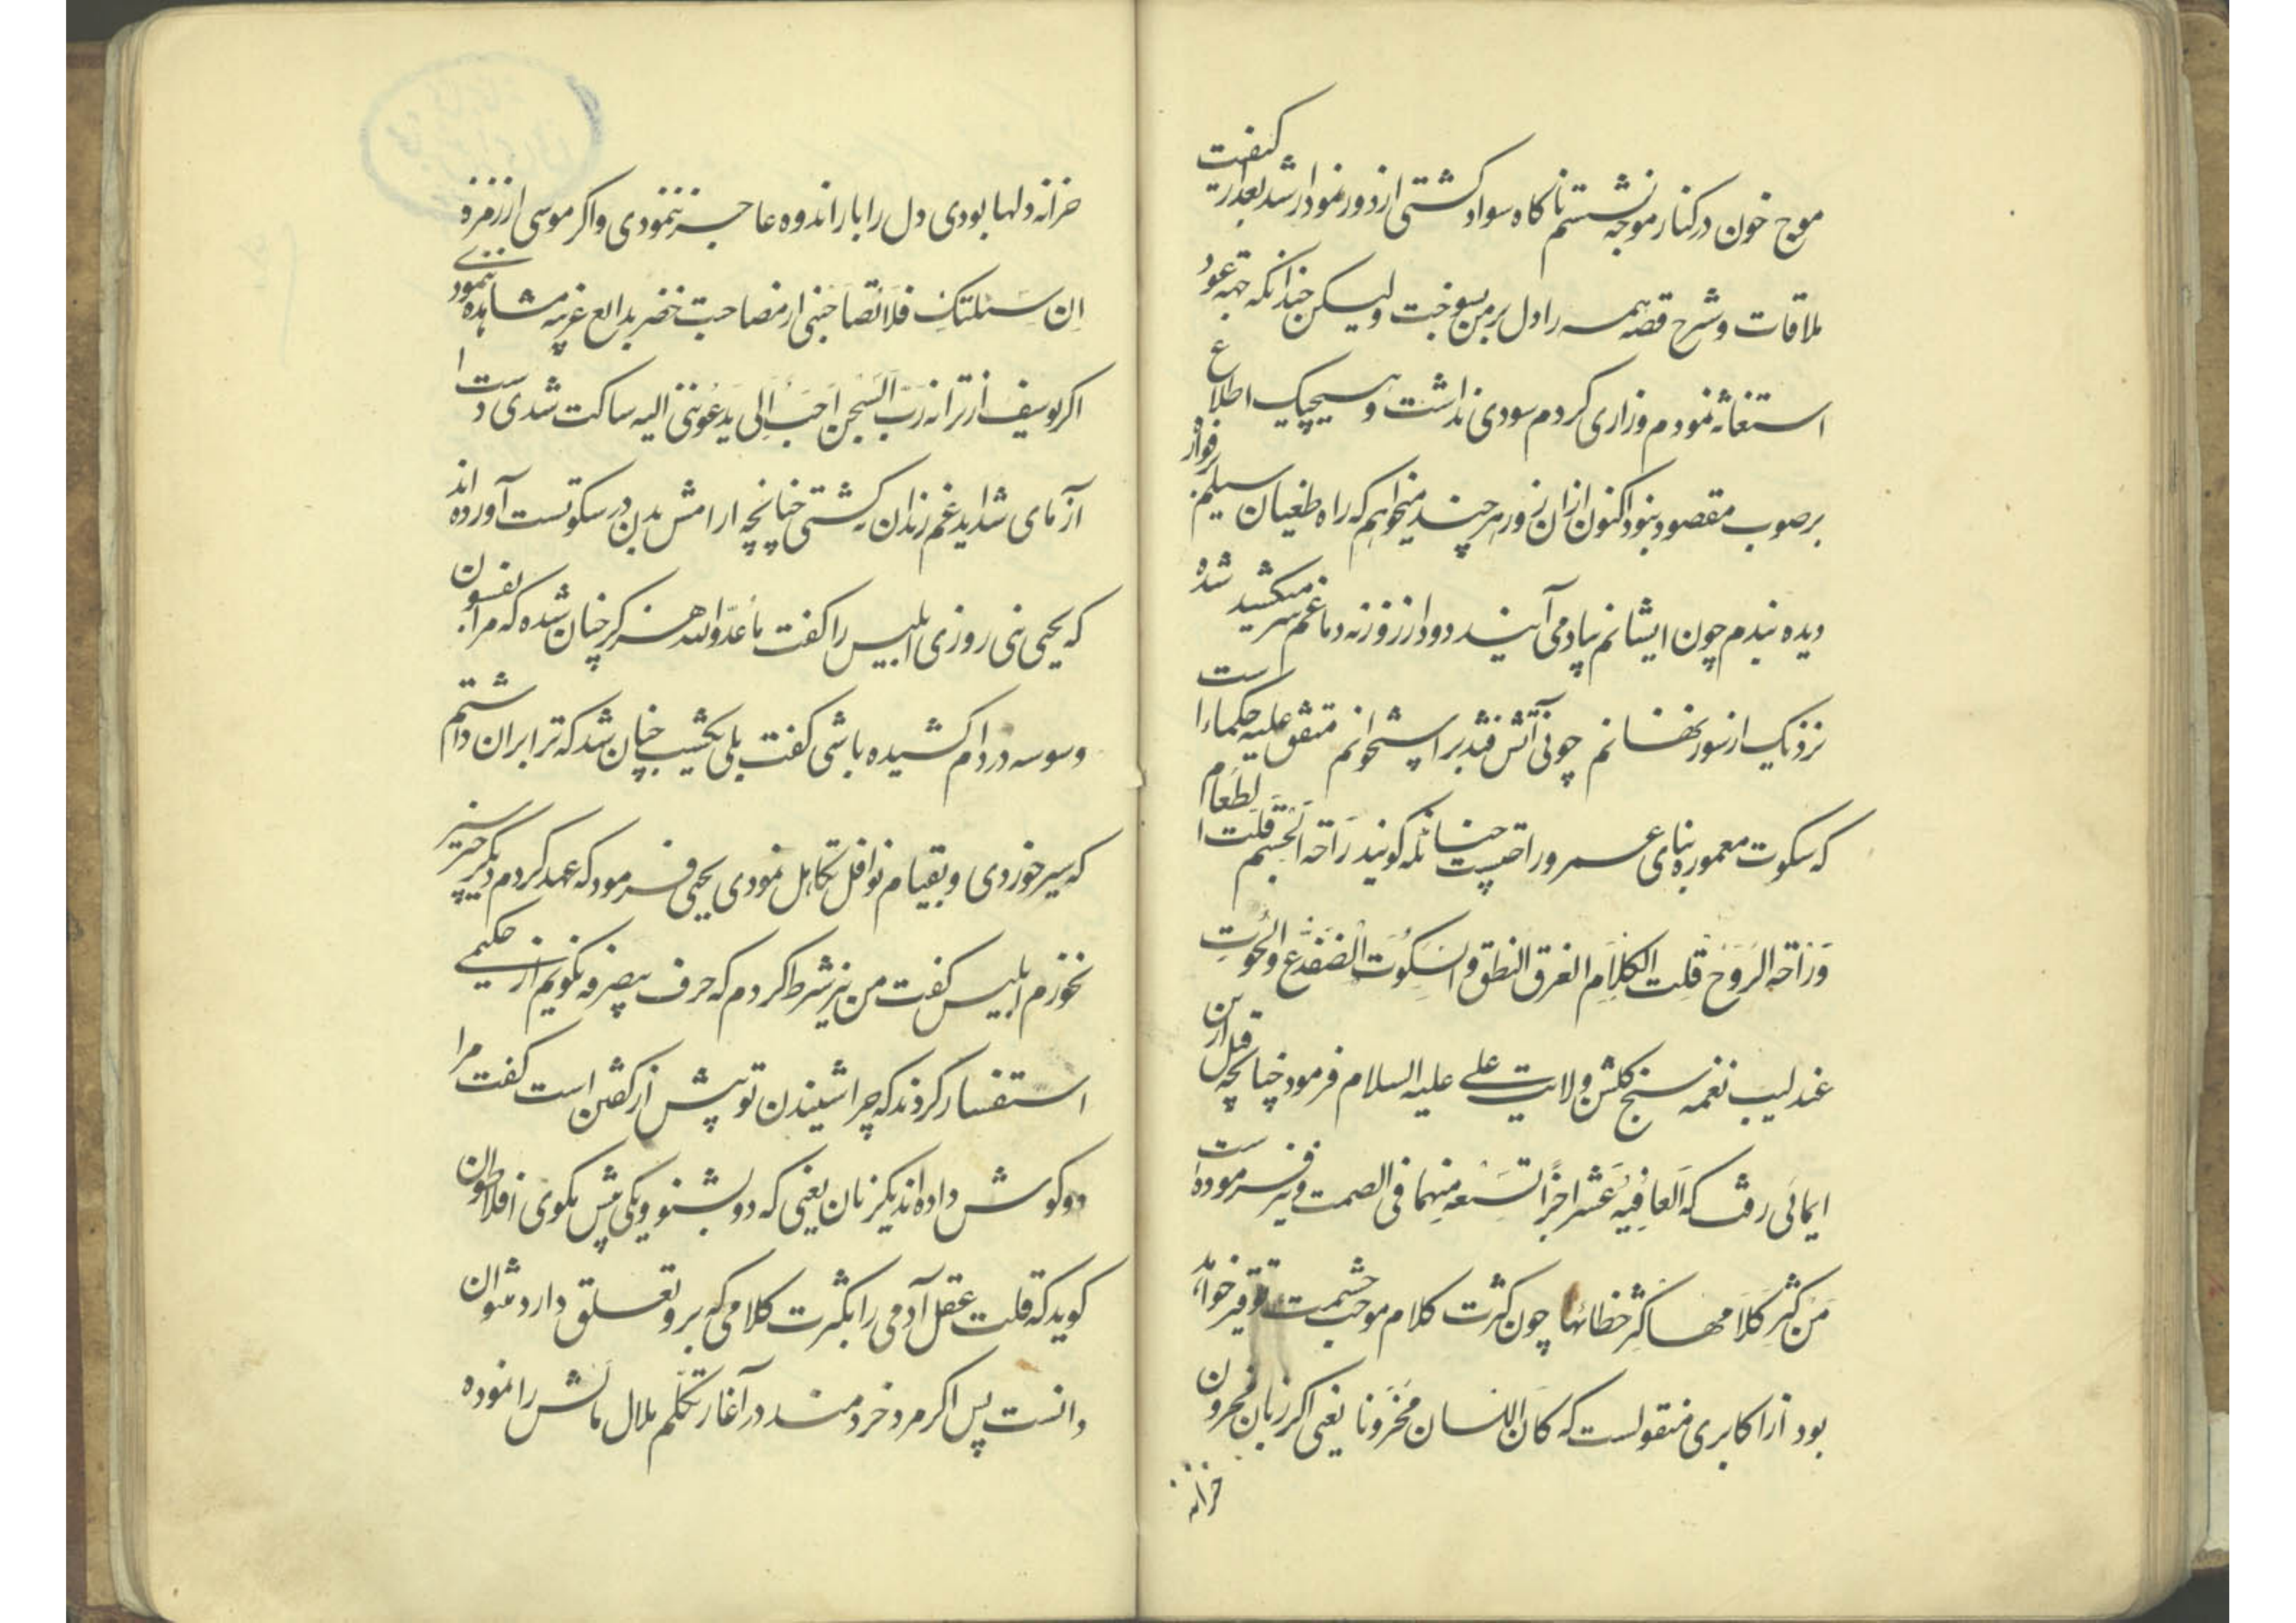 موج خون در کنار موجه نشستم ناکاه سواد کشتی از دور نمودار شد بعد از کیفیت
ملاقات و شرح قصه همه را دل بر من بسوخت ولیکن چندانکه جهة عود
استغاثه نمودم و زاری کردم سودی نداشت و هیچیک اطلاع
بر صوب مقصود نبود اکنون از ان روز هر چند میخواهم که راه طغیان سیلم
دیده بندم چون ایشانم بیاد می آیند دود از روزنه دماغم سر میکشید شده
نزدیک از سوز نهانم چونی آتش فتد بر استخوانم متفق علیه حکما است
که سکوت معموره بنای عمر و راحتست چنانکه کویند رَاحة الجسم قلت الطعام
وَرَاحة الروح قلت الکلام الغرق النطق و السکوت الضفدع والحوت
عندلیب نغمه سنج کلشن ولایت علی علیه السلام فرمود چنانچه قبل ازین
ایمائی رفت که العافیه عشر اجزا تسعه منهما فی الصمت و نیز فرموده است
من کثر کلامها کثر خطائها چون کثرت کلام موجب حشمت توقیر خواهد
بود از اکابری منقولست که کان اللسان مخزونا یعنی اکر زبان مخزون
خزانه
خزانه دلها بودی دل را بار اندوه عاجز ننمودی و اکر موسی از زمزمه
ان سئلتک فلا تصاحبنی از مصاحبت خضر بدایع غریبه مشاهده ننمودی
اکر یوسف از ترانه رب السجن احب الی یدعوننی الیه ساکت شدی دست
از مای شداید غم زندان نکشتی چنانچه ارامش بدن در سکوتست آورده اند
که یحیی نبی روزی ابلیس را کفت یا عدو الله هرکز چنان شده که مرا بفسون
وسوسه در دام کشیده باشی کفت بلی یکشب چنان شد که ترا بران داشتم
که سیر خوردی و بقیام نوافل تکاهل نمودی یحیی فرمود که عهد کردم دیکر چیز سیر
نخورم ابلیس کفت من نیز شرط کردم که حرف بیصرفه نکویم از حکیمی
استفسار کردند که چرا شنیدن تو بیش از کفتن است کفت مرا
دو کوش داده اند یکزبان یعنی که دو بشنو و یکی بیش مکوی افلاطون
کوید که قلت عقل آدمی را بکثرت کلامی که برو تعلق دارد میتوان
دانست پس اکر مرد خردمند در آغاز تکلم ملال مالش را نموده